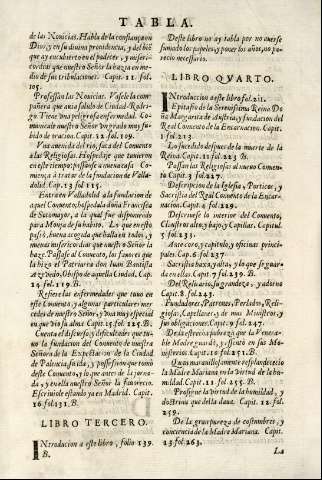 TABLA.
de las Nouicias. Habla de la confiança en
Dios, y en su diuina prouidencia, y del biẽ
que ay encubierto en el padecer, y miseri-
cordias que nuestro Señor la hazia en me-
dio de sus tribulaciones. Capit. 11. fol.
105.
Professan las Nouicias. Vasele la com-
pañera que auia salido de Ciudad-Rodri-
go. Tiene vna peligrosa enfermedad. Co-
municale nuestro Señor vn grado muy su-
bido de oracion. Capit. 12. fol. 109.
Vna auenida del rio, saca del Conuento
a las Religiosas. Hospedaje que tuuieron
en este tiempo; passanse a nueua casa. Co-
miença a tratar de la fundacion de Valla-
dolid. Cap. 13. fol. 115.
Entra en Valladolid a la fundacion de
aquel Conuento, hospedala doña Francisca
de Sotomayor, a la qual fue disponiendo
para Monja de su habito. Lo que en esto
passò, buena acogida que halla en todos, y
nueuas misericordias que nuestro Señor la
haze. Passase al Conuento, las fauores que
la hizo el Patriarca don Iuan Bautista
Azeuedo, Obispo de aquella Ciudad. Cap.
14. fol. 119. B.
Refiere las enfermedades que tuuo en
este Conuento, y algunas particulares mer-
cedes de nuestro Señor, y vna muy especial
en que vio su alma. Capit. 15. fol. 125. B.
Cuenta el discurso y dificultades que tu-
uo la fundacion del Conuento de nuestra
Señora de la Expectacion de la Ciudad
de Palencia, su ida, y possession que tomò
deste Conuento, y lo que antes de la jorna-
da, y en ella nuestro Señor la fauorecio.
Escriuiole estando ya en Madrid. Capit.
16. fol. 131. B.
LIBRO TERCERO.
INtroducion a este libro, folio 139.
B.
Deste libro no ay tabla por no auerse
sumado los papeles, y poner los años, no pa-
recio necessario.
LIBRO QVARTO.
INtroduccion a este libro fol. 211.
Epitafio de la Serenissima Reina Do
ña Margarita de Austria, y fundacion del
Real Conuento de la Encarnacion. Capit.
1. fol. 213.
Lo sucedido despues de la muerte de la
Reina. Capit. 11. fol. 223. B.
Passan las Religiosas al nueuo Conuen-
to Capit. 3. fol. 227.
Descripcion de la Iglesia, Portico, y
Sacristia del Real Conuento de la Encar-
nacion. Capit. 4. fol. 229.
Descriuese lo interior del Conuento,
Claustro alto, y baxo, y Capillas. Capitul.
5. fol. 231.
Antecoro, y capitulo, y oficinas princi-
pales. Cap. 6. fol. 237
Sacristia baxa, y alta, y lo que se guar-
da en ellas. Capit. 7. fol. 239. B.
Del Relicario, su grandeza, y adorno
Capit. 8. fol. 243.
Fundadores, Patrones, Perlado, Reli-
giosas, Capellanes, y demas Ministros, y
sus obligaciones. Capit. 9. fol. 247.
De la estrecha pobreza que la Venera-
ble Madre guardò, y assentò en sus Mo-
nasterios. Capit. 10. fol. 251. B.
Quan marauillosamente resplandeciò en
la Madre Mariana en la virtud de la hu-
mildad. Capit. 11. fol. 255. B.
Prosigue la virtud de la humildad, y
doctrina que della daua. Capit. 12. fol.
259.
De la gran pureza de costumbres, y
conciencia de la Madre Mariana. Capit.
13. fol. 263.
La